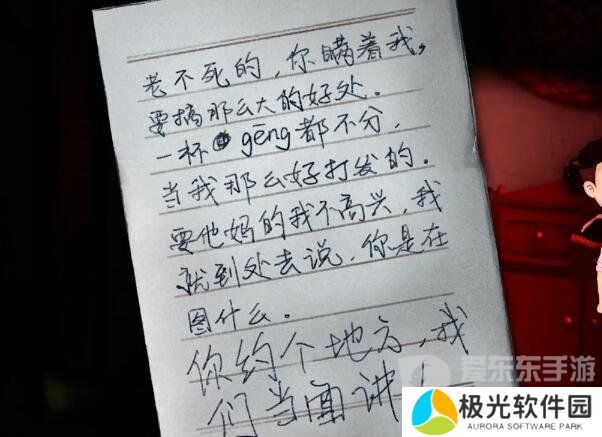 老不死的，你瞒着我，
要搞那么大的好处。
一杯 gēng都不分，
当我那么好打发的。
要他妈的我不高兴，我
就到处去说，你是在
图什么。
你约个地方，我
们当面讲！
爱东东手游
极光软件园
AURORA SOFTWARE PARK